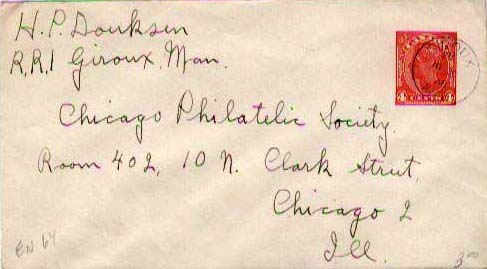 H. P. Douksen
R.R.1 Giroux, Man.
Chicago Philatelic Society.
Room 402, 10 N. Clark Street,
Chicago 2
Ill.
4 CENTS 4
EN 64
3.00